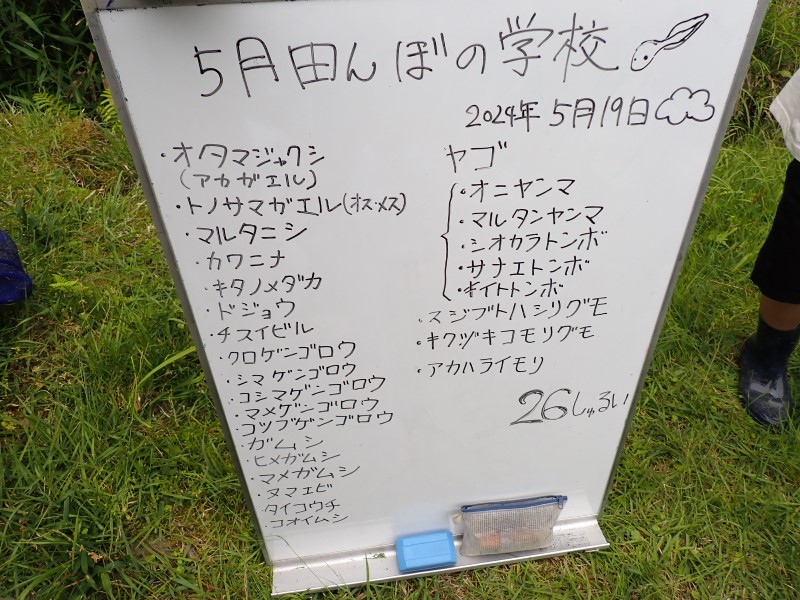 5月田んぼの学校
2024年5月19日
・オタマジャクシ
(アカガエル)
・トノサマガエル(オス・メス)
・マルタニシ
・カワニナ
・キタノメダカ
・ドジョウ
・チスイビル
・クロゲンゴロウ
・シマゲンゴロウ
・コシマゲンゴロウ
・マメゲンゴロウ
・コツブゲンゴロウ
・ガムシ
・ヒメガムシ
・マメガムシ
・ヌマエビ
・タイコウチ
・コオイムシ
ヤゴ
・オニヤンマ
・マルタンヤンマ
・シオカラトンボ
・サナエトンボ
・キイトトンボ
・スジブトハシリグモ
・キクヅキコモリグモ
・アカハライモリ
26しゅるい